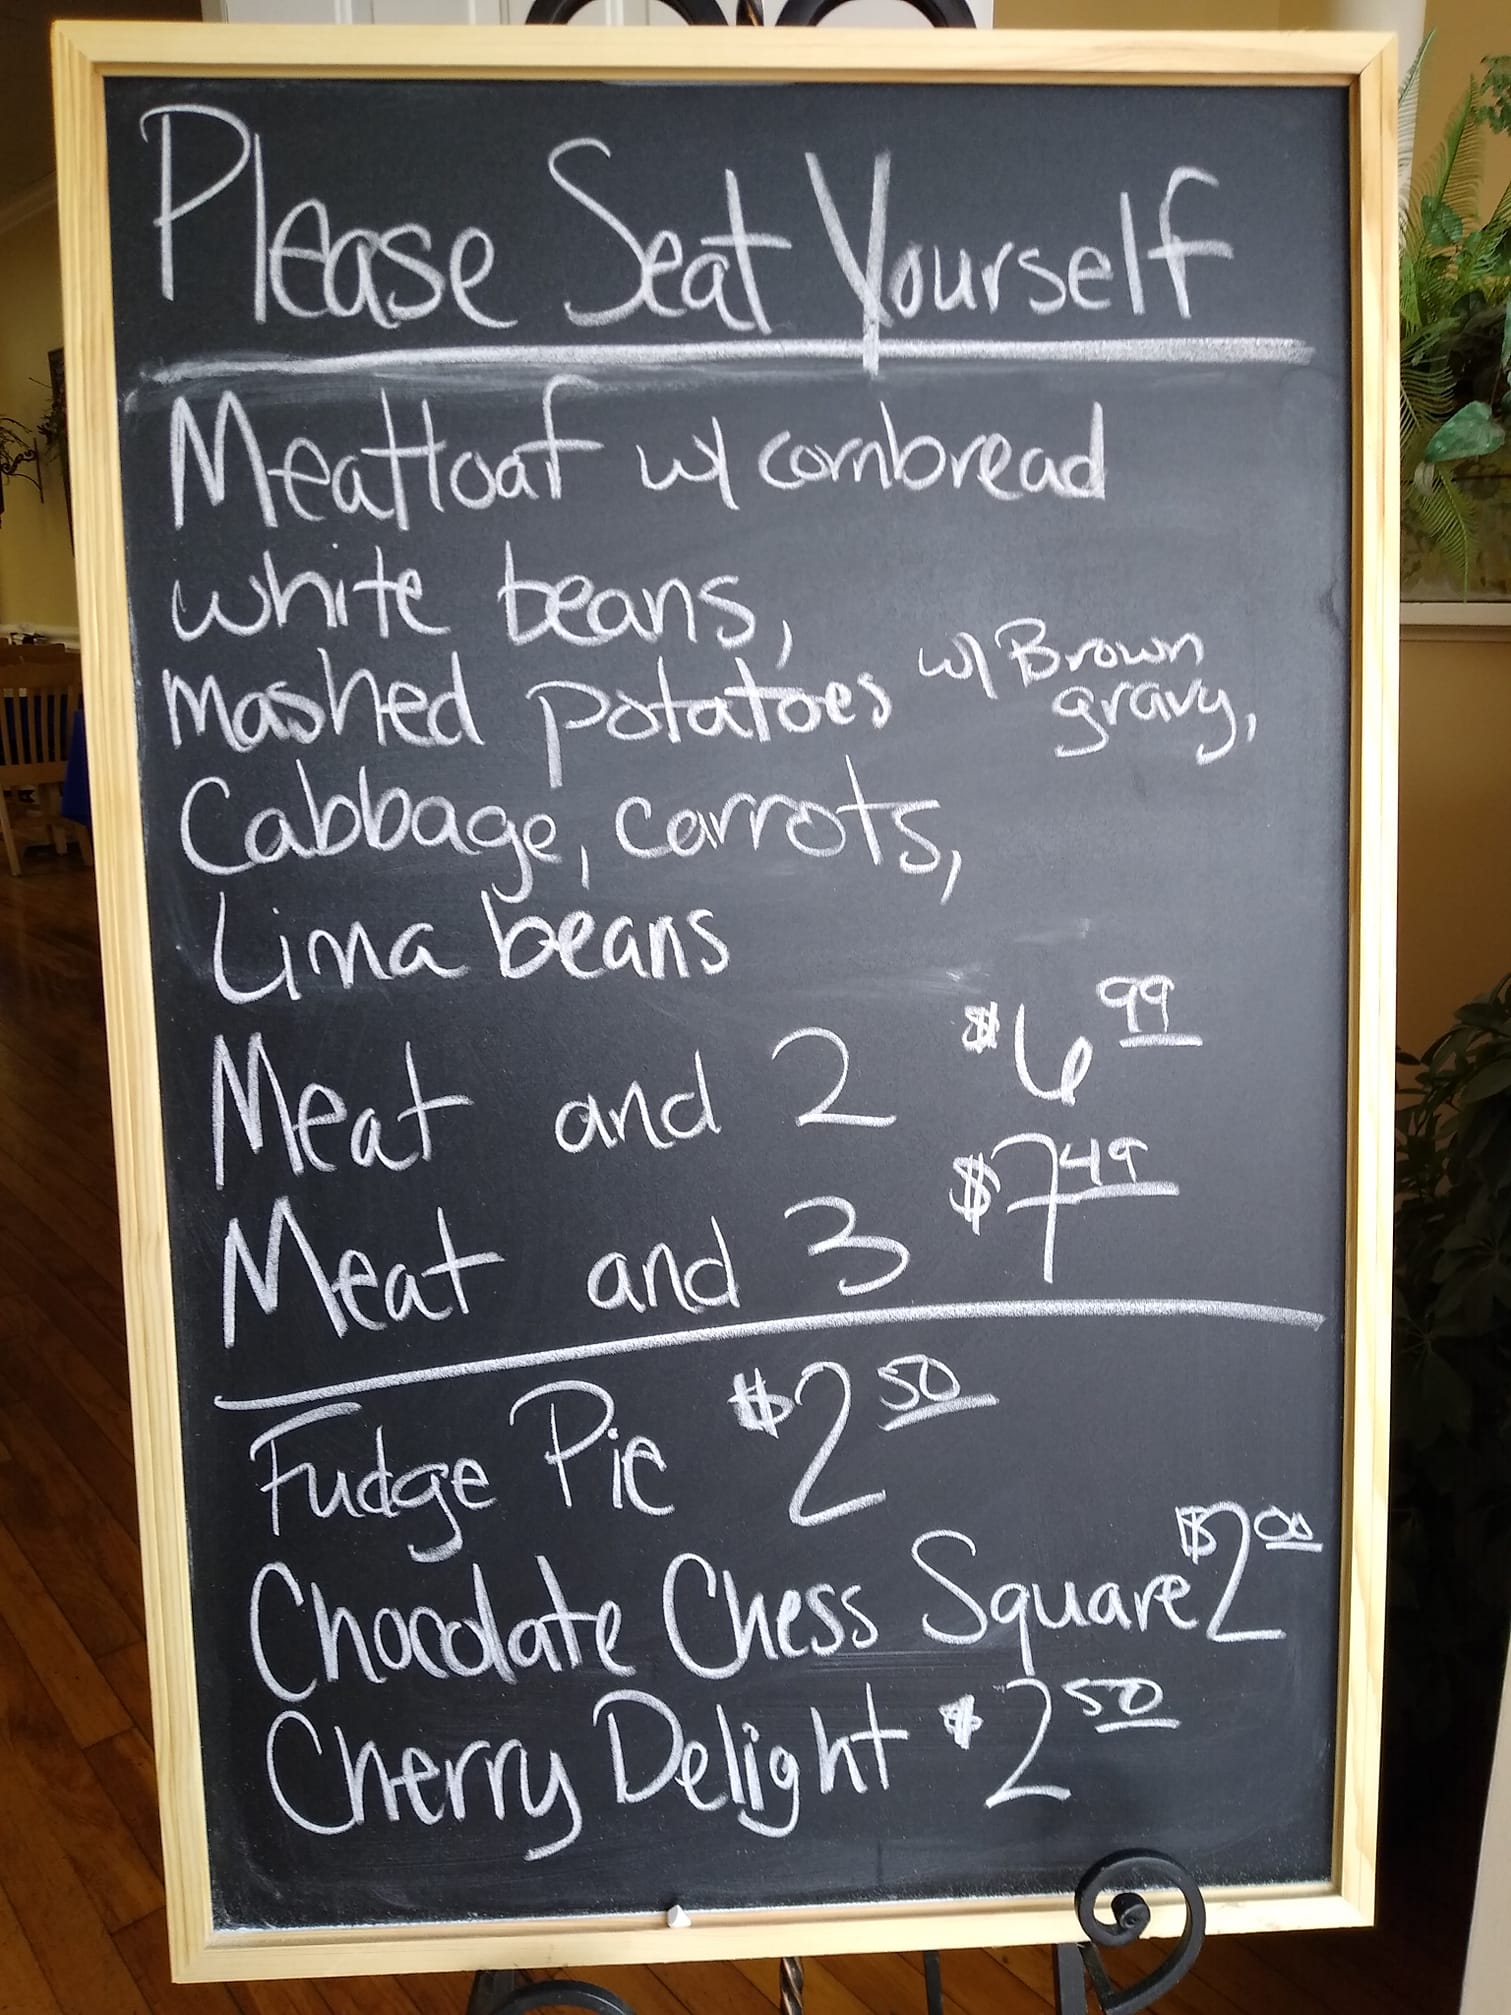 Please Seat Yourself
Meatloaf w/ cornbread
white beans,
mashed potatoes w/ Brown gravy,
Cabbage, carrots,
Lima beans
Meat and 2 $6.99
Meat and 3 $7.49
Fudge Pie $2.50
Chocolate Chess Square $2.00
Cherry Delight $2.50